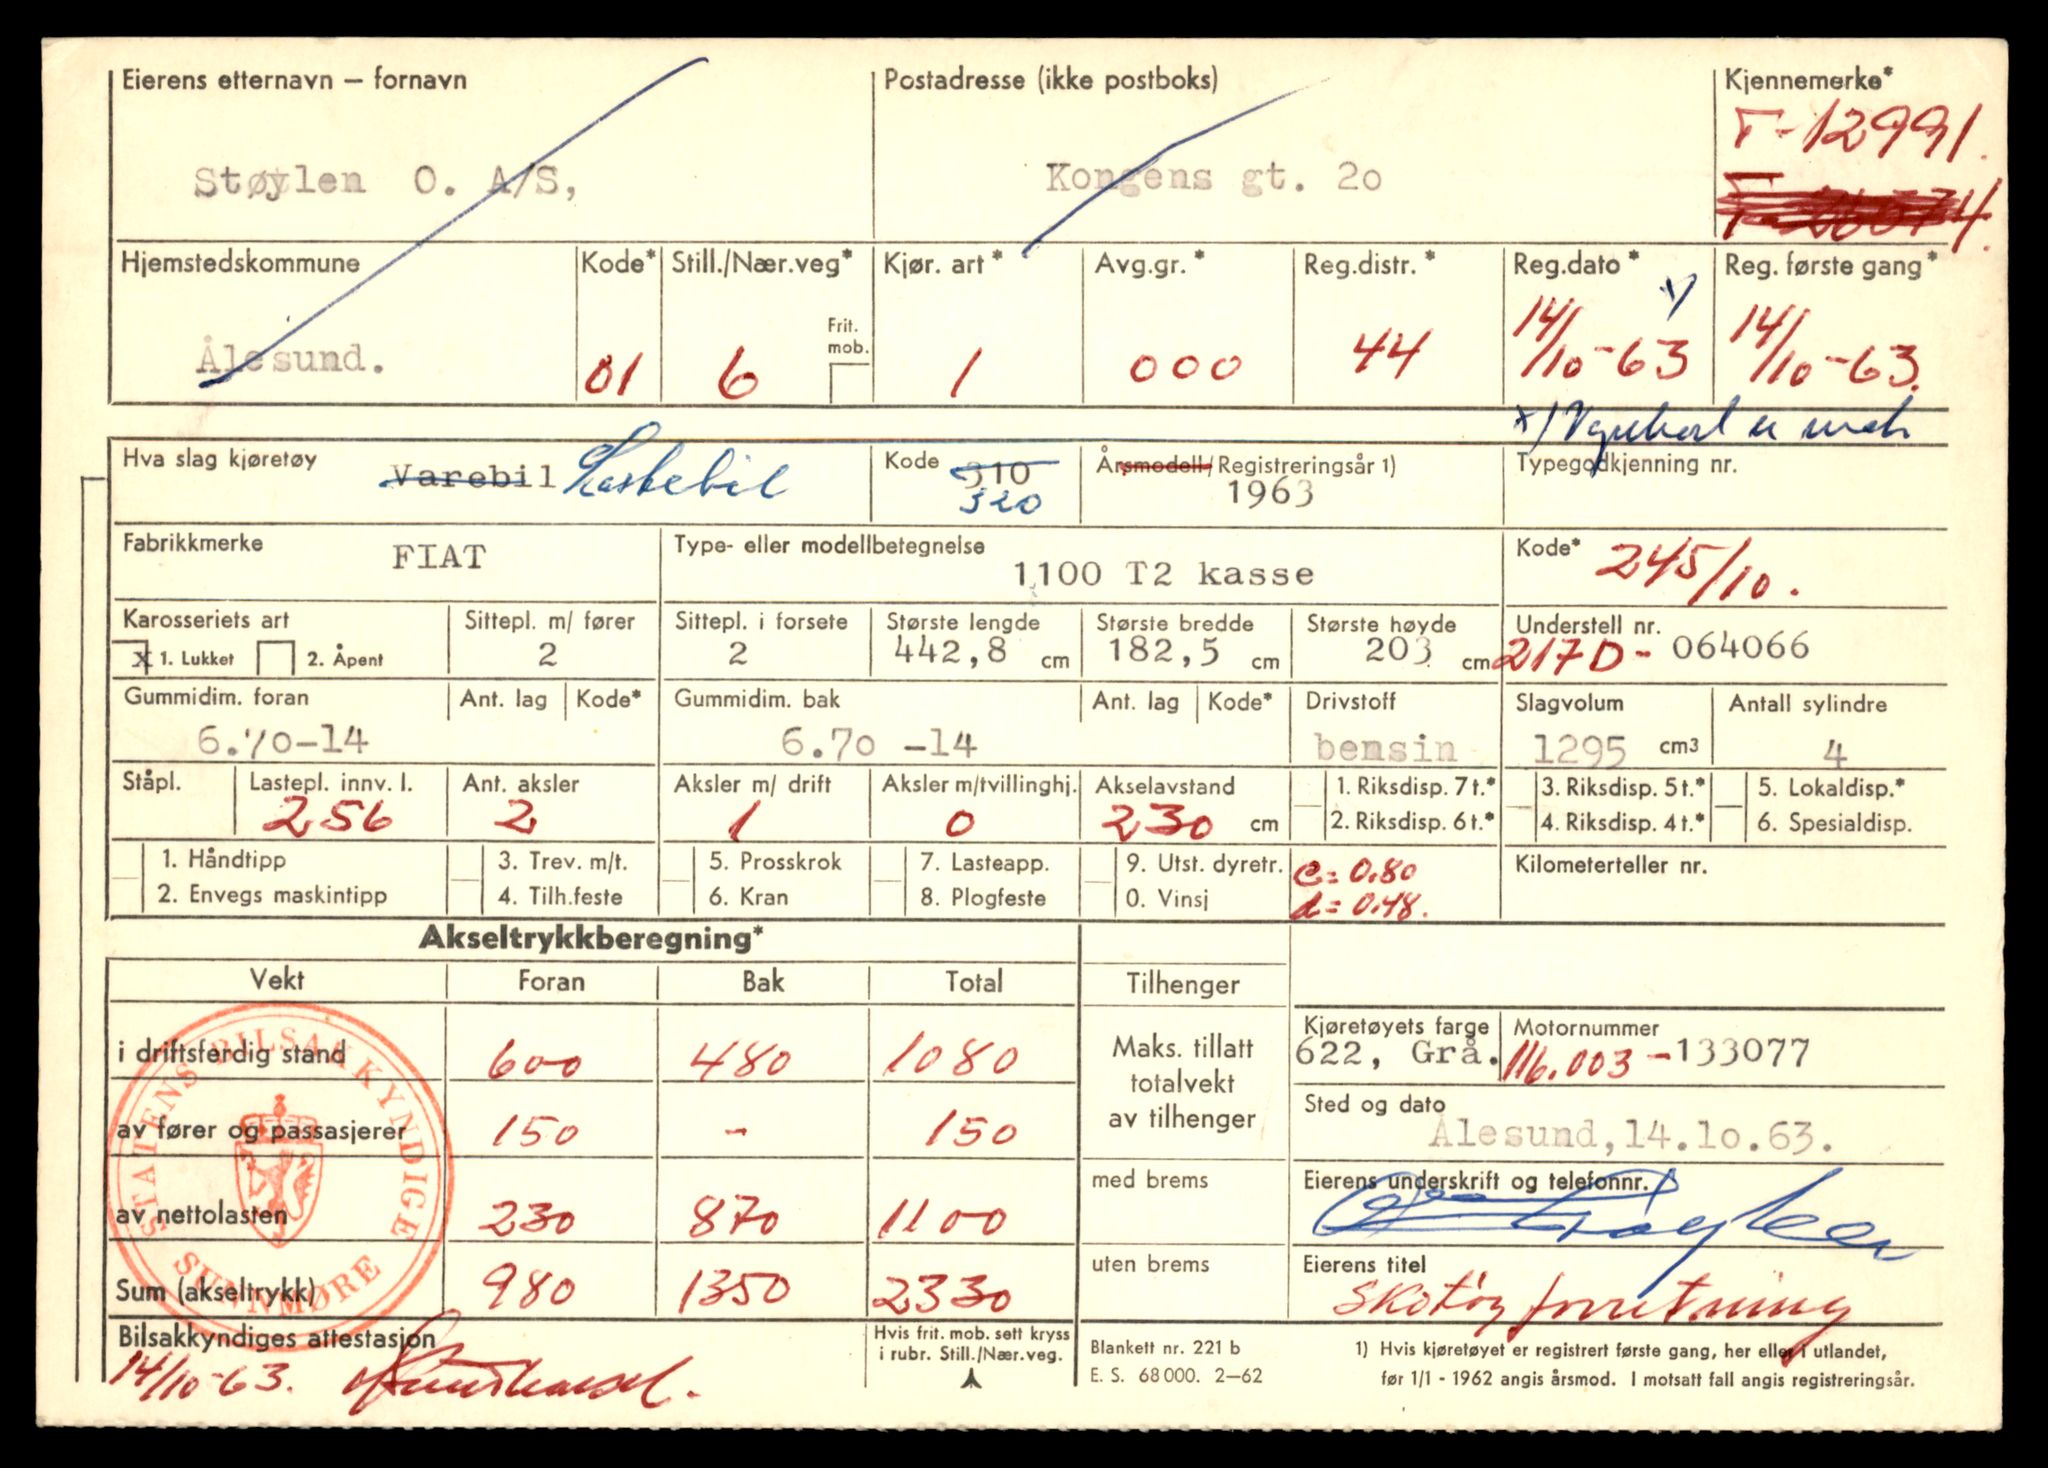 Eierens etternavn – fornavn Postadresse (ikke postboks) Kjennemerke*
T-12991.
Støylen O. A/S, Kongens gt. 2o
Hjemstedskommune Kode* Still./Nær.veg* Kjør. art* Avg.gr.* Reg.distr.* Reg.dato* Reg. første gang*
Frit. mob.
Ålesund. 01 6 1 000 44 14/10-63 14/10-63.
x)
Hva slag kjøretøy Varebil Lastebil Kode 310 320 Årsmodell/Registreringsår 1) 1963 Typegodkjenning nr.
Fabrikkmerke FIAT Type- eller modellbetegnelse 1100 T2 kasse Kode* 245/10.
Karosseriets art Sittepl. m/ fører Sittepl. i forsete Største lengde Største bredde Største høyde Understell nr.
x 1. Lukket 2. Åpent 2 2 442,8 cm 182,5 cm 203 cm 217D- 064066
Gummidim. foran Ant. lag Kode* Gummidim. bak Ant. lag Kode* Drivstoff Slagvolum Antall sylindre
6.70-14 6.70 -14 bensin 1295 cm3 4
Ståpl. Lastepl. innv. l. Ant. aksler Aksler m/ drift Aksler m/tvillinghj. Akselavstand 1. Riksdisp. 7 t.* 3. Riksdisp. 5 t.* 5. Lokaldisp.*
256 2 1 0 230 cm 2. Riksdisp. 6 t.* 4. Riksdisp. 4 t.* 6. Spesialdisp.
1. Håndtipp 3. Trev. m/t. 5. Prosskrok 7. Lasteapp. 9. Utst. dyretr. c= 0.80 Kilometerteller nr.
2. Envegs maskintipp 4. Tilh.feste 6. Kran 8. Plogfeste 0. Vinsj d= 0.48.
Akseltrykkberegning*
Vekt Foran Bak Total Tilhenger
i driftsferdig stand 600 480 1080
Maks. tillatt totalvekt av tilhenger
Kjøretøyets farge Motornummer
622, Grå. 116.003-133077
av fører og passasjerer 150 - 150
Sted og dato
Ålesund, 14.1o.63.
av nettolasten 230 870 1100
med brems
Eierens underskrift og telefonnr.
Sum (akseltrykk) 980 1350 2330
uten brems
Eierens titel
Skotøyforretning
STATENS BILSAKKYNDIGE
SUNNMØRE
Bilsakkyndiges attestasjon
14/10-63.
Hvis frit. mob. sett kryss
i rubr. Still./Nær.veg.
Blankett nr. 221 b
E. S. 68 000. 2–62
1) Hvis kjøretøyet er registrert første gang, her eller i utlandet,
før 1/1 - 1962 angis årsmod. I motsatt fall angis registreringsår.